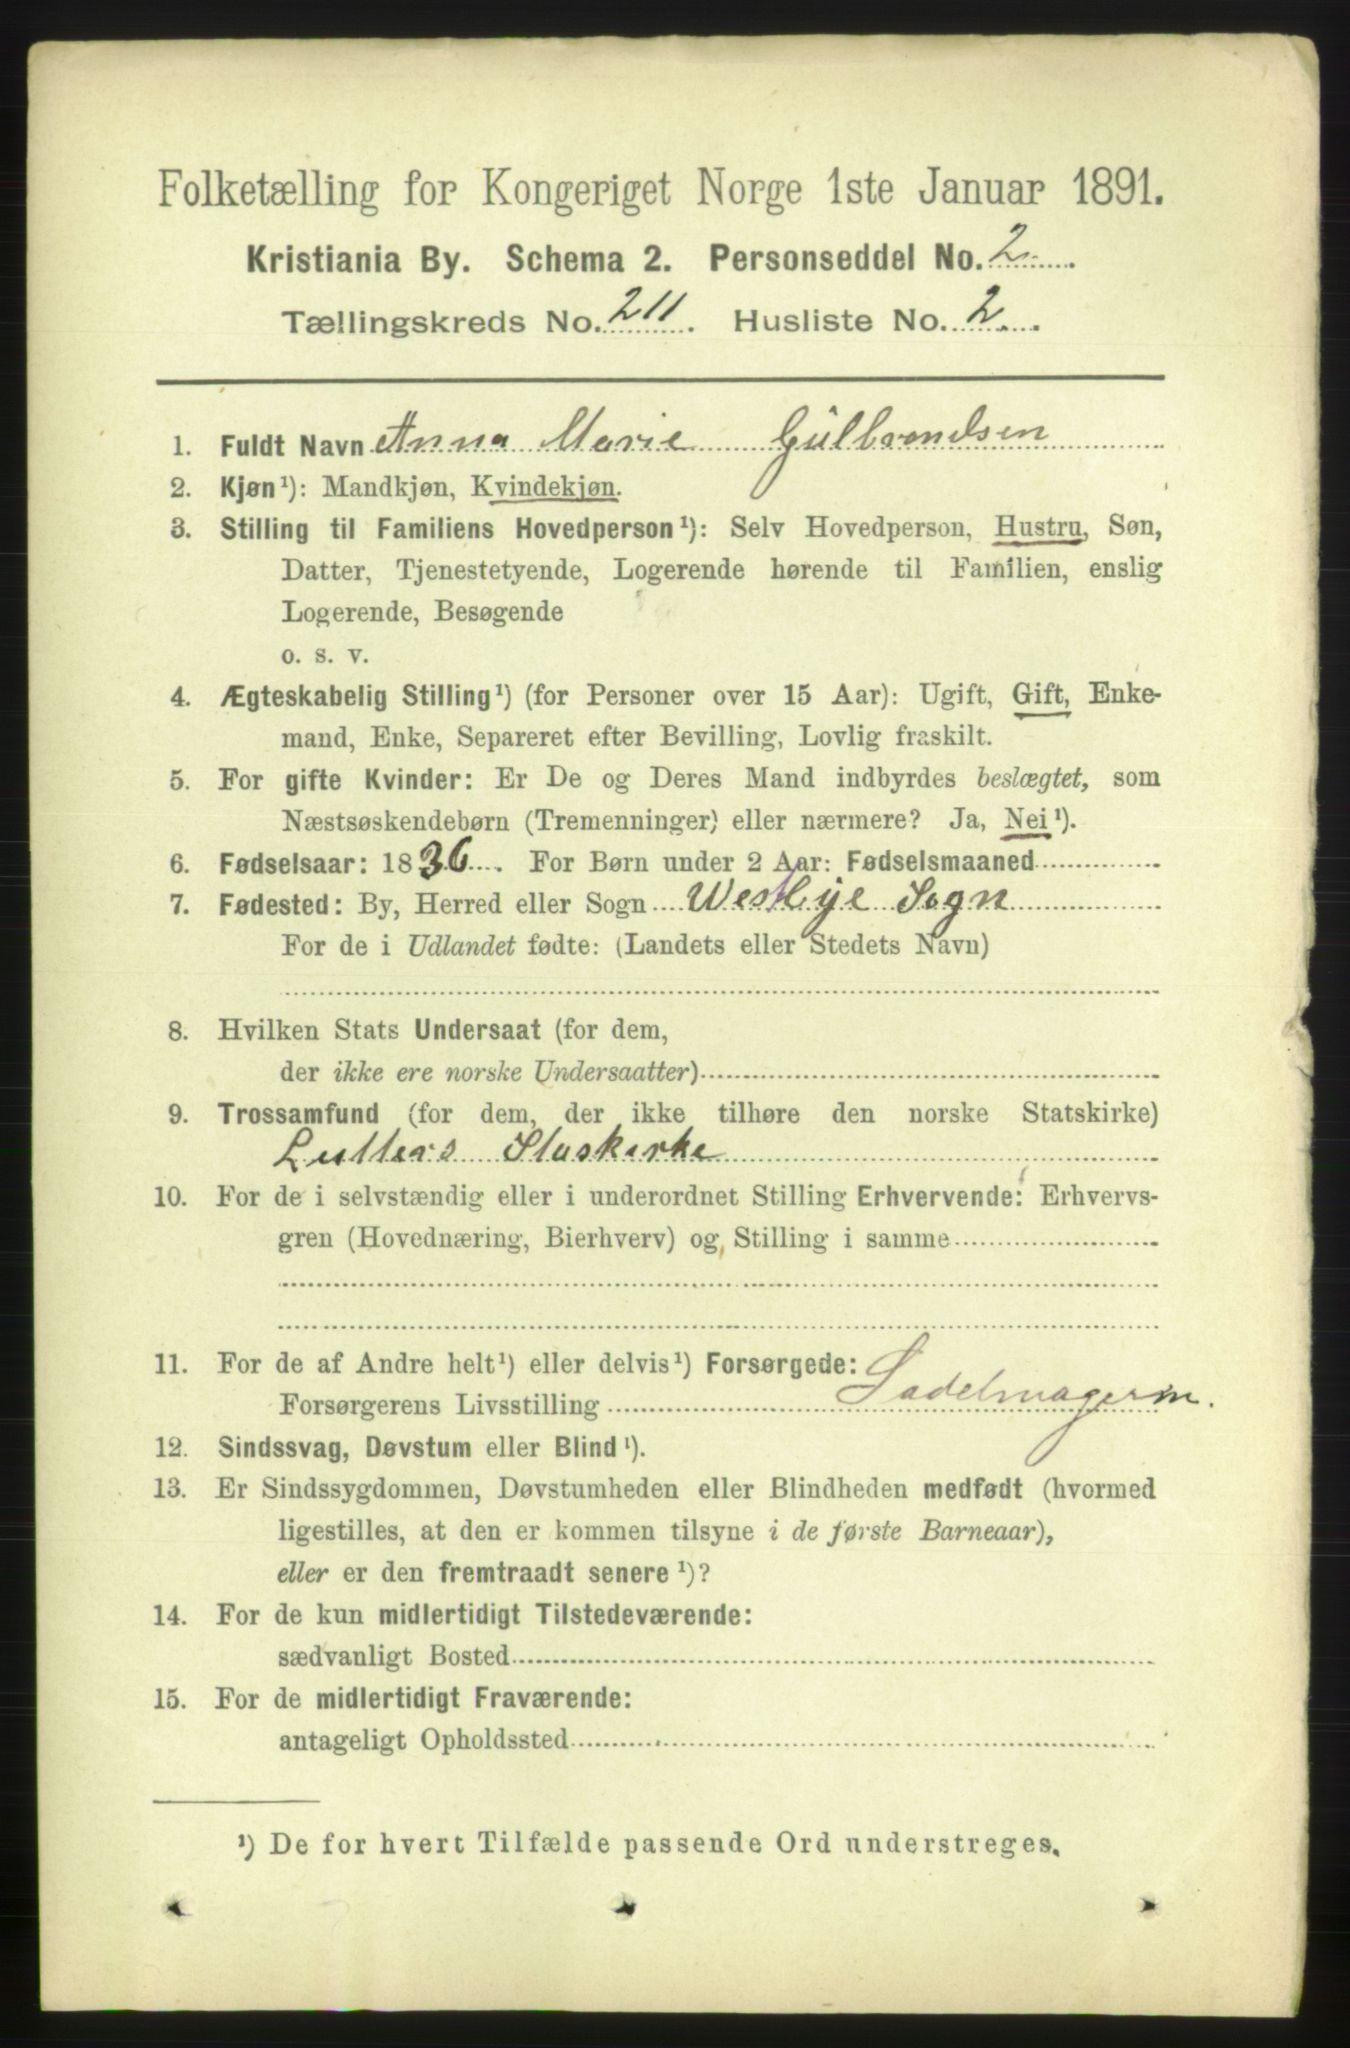 Folketælling for Kongeriget Norge 1ste Januar 1891.
Kristiania By. Schema 2. Personseddel No. 2
Tællingskreds No. 211. Husliste No. 2.
1. Fuldt Navn Anna Marie Gülbrandsen
2. Kjøn¹): Mandkjøn, Kvindekjøn.
3. Stilling til Familiens Hovedperson¹): Selv Hovedperson, Hustru, Søn,
Datter, Tjenestetyende, Logerende hørende til Familien, enslig
Logerende, Besøgende
o. s. v.
4. Ægteskabelig Stilling¹) (for Personer over 15 Aar): Ugift, Gift, Enke-
mand, Enke, Separeret efter Bevilling, Lovlig fraskilt.
5. For gifte Kvinder: Er De og Deres Mand indbyrdes beslægtet, som
Næstsøskendebørn (Tremenninger) eller nærmere? Ja, Nei¹).
6. Fødselsaar: 1836. For Børn under 2 Aar: Fødselsmaaned
7. Fødested: By, Herred eller Sogn Westbye Sogn
For de i Udlandet fødte: (Landets eller Stedets Navn)
8. Hvilken Stats Undersaat (for dem,
der ikke ere norske Undersaatter)
9. Trossamfund (for dem, der ikke tilhøre den norske Statskirke)
Lutters Staskirke
10. For de i selvstændig eller i underordnet Stilling Erhvervende: Erhvervs-
gren (Hovednæring, Bierhverv) og Stilling i samme
11. For de af Andre helt¹) eller delvis¹) Forsørgede:
Forsørgerens Livsstilling Sadelmagerm.
12. Sindssvag, Døvstum eller Blind¹).
13. Er Sindssygdommen, Døvstumheden eller Blindheden medfødt (hvormed
ligestilles, at den er kommen tilsyne i de første Barneaar),
eller er den fremtraadt senere¹)?
14. For de kun midlertidigt Tilstedeværende:
sædvanligt Bosted
15. For de midlertidigt Fraværende:
antageligt Opholdssted
¹) De for hvert Tilfælde passende Ord understreges.